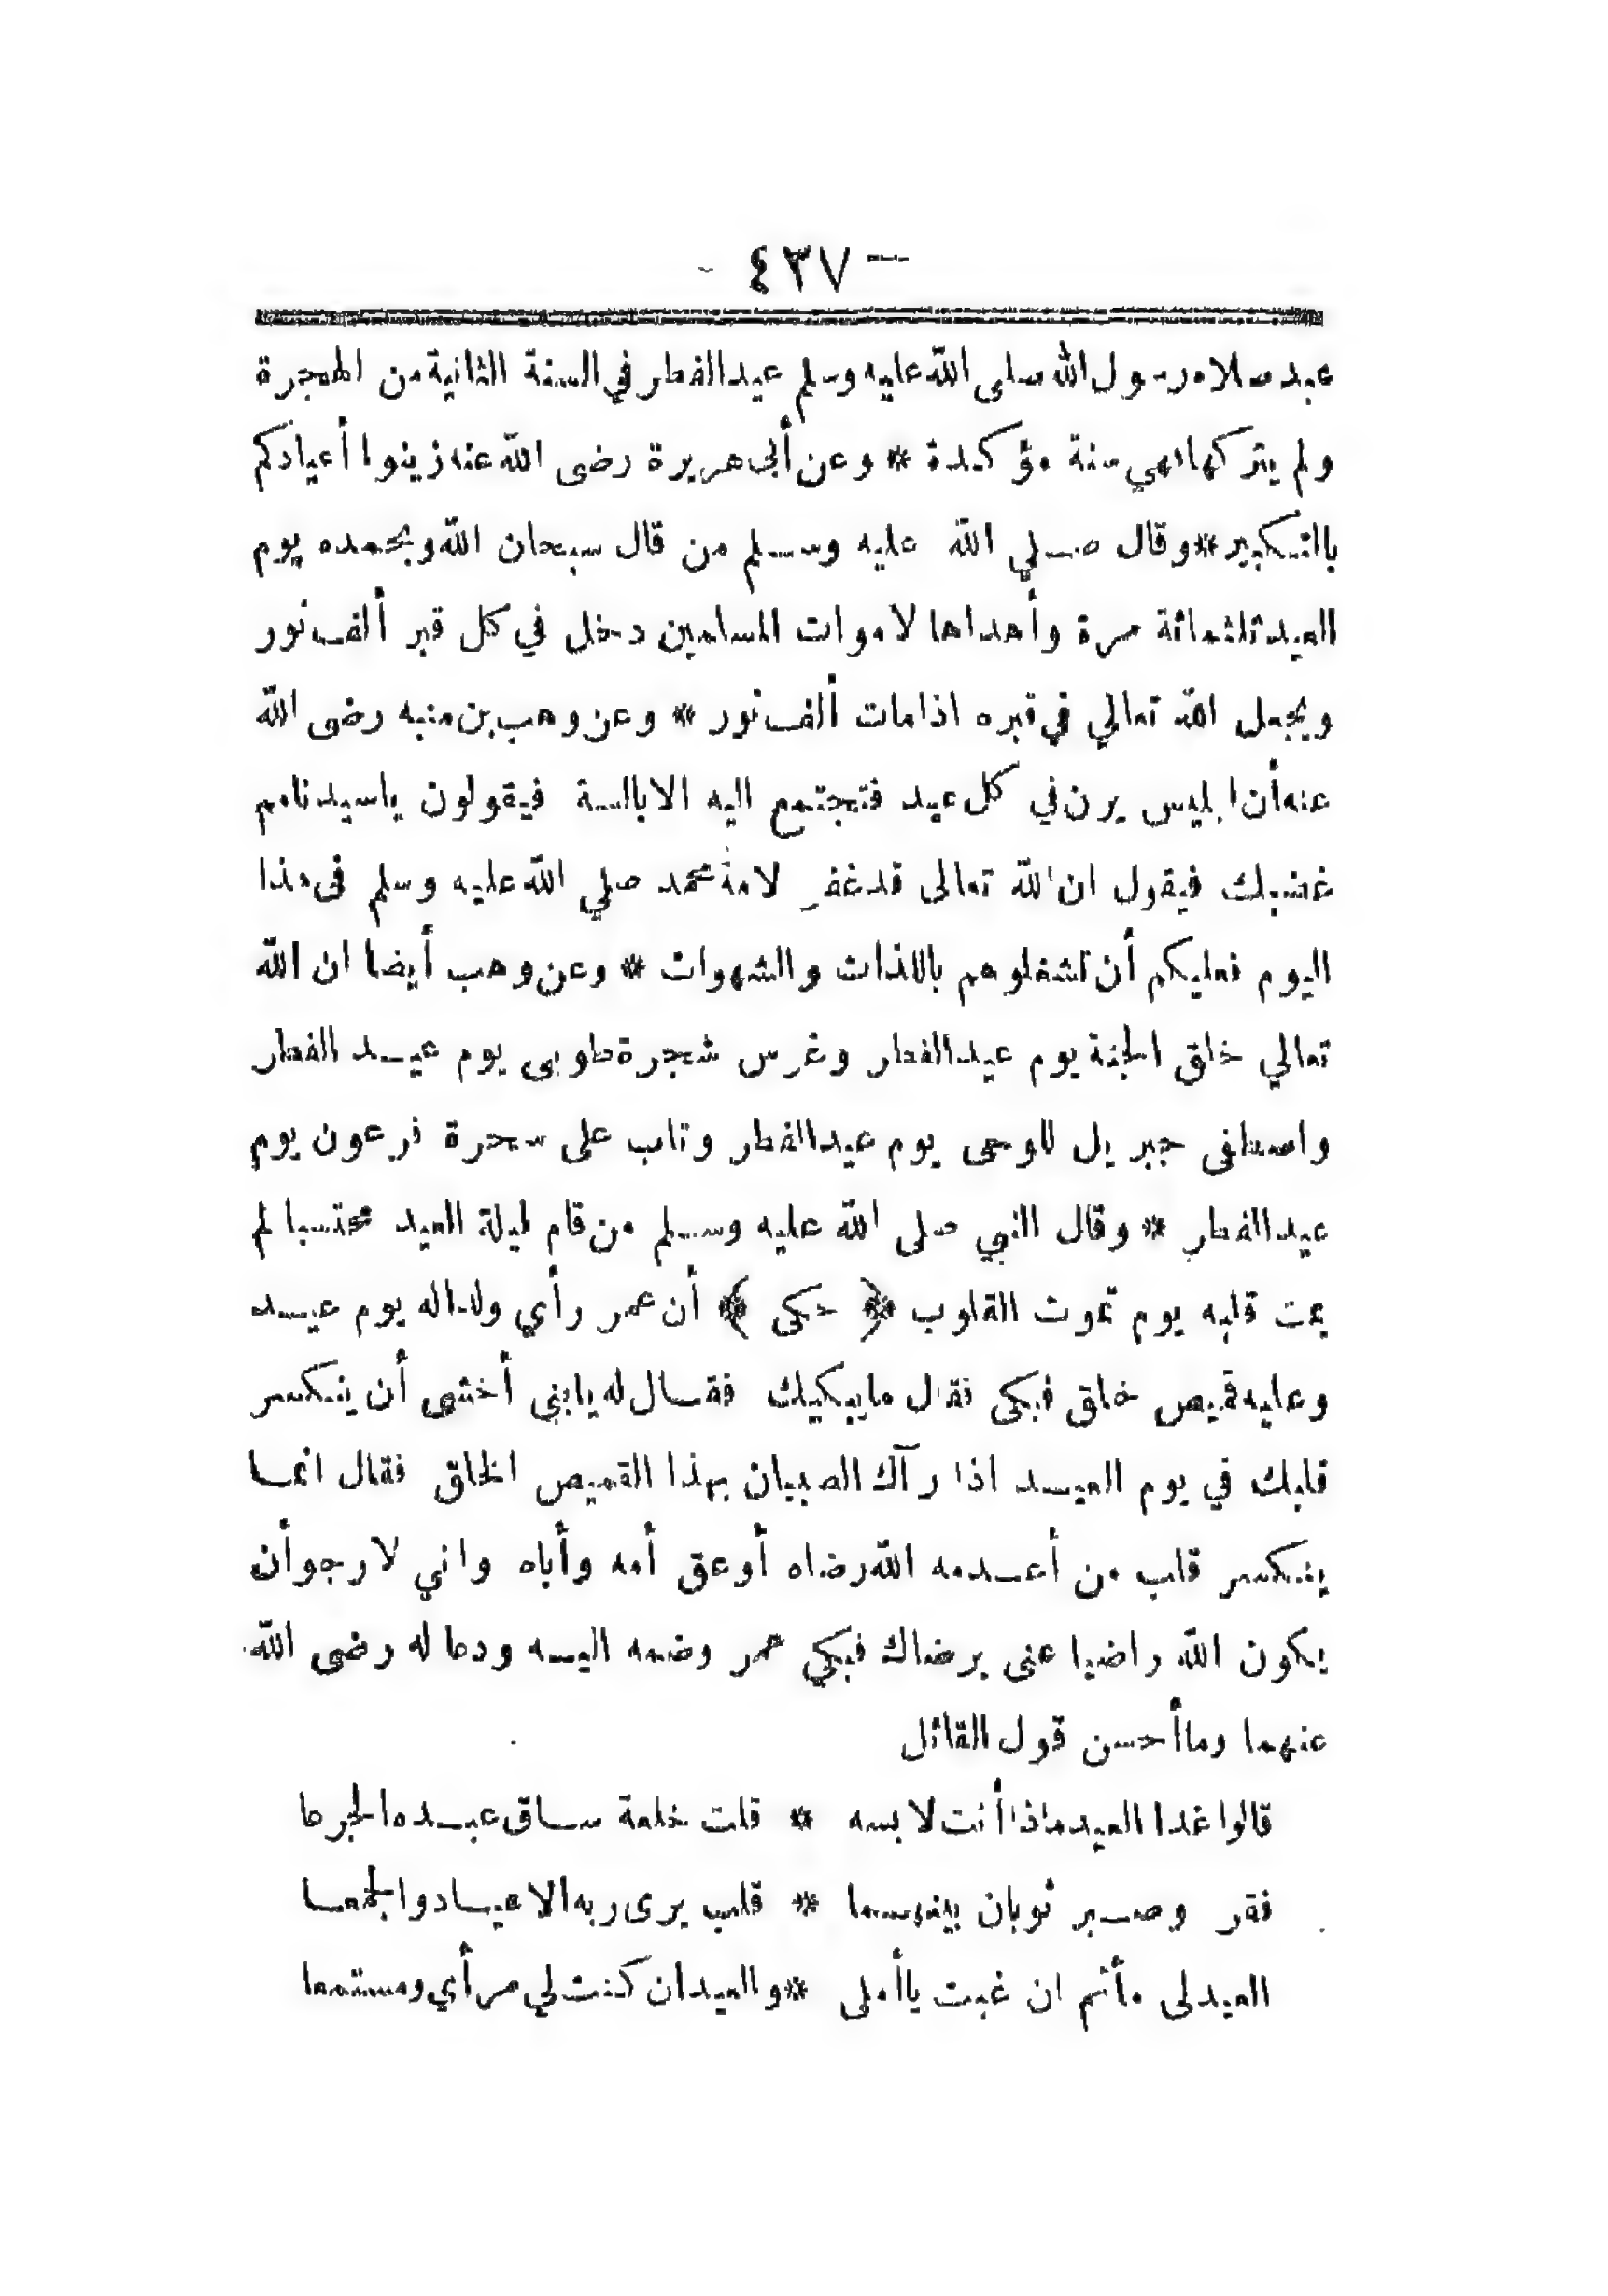 — ٤٣٧ -
عيد صلاه رسول الله صلى الله عليه وسلم عيد الفطر في السنة الثانية من الهجرة
ولم يتركها فهي سنة مؤكدة * وعن أبي هريرة رضى الله عنه زينوا أعيادكم
بالتكبير * وقال صلي الله عليه وسلم من قال سبحان الله وبحمده يوم
العيد ثلثمائة مرة وأهداها لاموات المسلمين دخل في كل قبر ألف نور
ويجعل الله تعالي في قبره اذا مات ألف نور * وعن وهب بن منبه رضى الله
عنه أن ابليس يرن في كل عيد فتجتمع اليه الابالسة فيقولون ياسيدنا مم
غضبك فيقول ان الله تعالى قد غفر لامة محمد صلي الله عليه وسلم فى هذا
اليوم فعليكم أن تشغلوهم باللذات والشهوات * وعن وهب أيضا ان الله
تعالي خلق الجنة يوم عيد الفطر وغرس شجرة طوبى يوم عيد الفطر
واصطفى جبريل للوحى يوم عيد الفطر وتاب على سحرة فرعون يوم
عيد الفطر * وقال النبي صلى الله عليه وسلم من قام ليلة العيد محتسبا لم
يمت قلبه يوم تموت القلوب ﴿ حكى ﴾ أن عمر رأي ولدا له يوم عيد
وعليه قميص خلق فبكى فقال ما يبكيك فقال له يابنى أخشى أن ينكسر
قلبك في يوم العيد اذا رآك الصبيان بهذا القميص الخلق فقال انما
ينكسر قلب من أعدمه الله رضاه أو عق أمه وأباه واني لارجو أن
يكون الله راضيا عنى برضاك فبكي عمر وضمه اليه ودعا له رضى الله
عنهما وما أحسن قول القائل
قالوا غدا العيد ماذا أنت لابسه * قلت خلعة ساق عبده الجرعا
فقر وصبر ثوبان بينهما * قلب يرى ربه الاعياد والجمعا
العيد لى مأتم ان غبت ياأملى * والعيد ان كنت لي مرأي ومستمعا